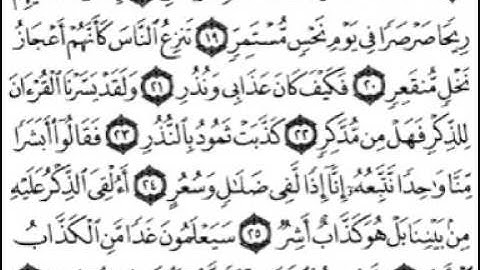 رِيحًا صَرْصَرًا فِى يَوْمِ نَحْسٍ مُّسْتَمِرٍّ ١٩ تَنزِعُ ٱلنَّاسَ كَأَنَّهُمْ أَعْجَازُ
نَخْلٍ مُّنقَعِرٍ ٢٠ فَكَيْفَ كَانَ عَذَابِى وَنُذُرِ ٢١ وَلَقَدْ يَسَّرْنَا ٱلْقُرْءَانَ
لِلذِّكْرِ فَهَلْ مِن مُّدَّكِرٍ ٢٢ كَذَّبَتْ ثَمُودُ بِٱلنُّذُرِ ٢٣ فَقَالُوٓا۟ أَبَشَرًا
مِّنَّا وَٰحِدًا نَّتَّبِعُهُۥٓ إِنَّآ إِذًا لَّفِى ضَلَٰلٍ وَسُعُرٍ ٢٤ أَءُلْقِىَ ٱلذِّكْرُ عَلَيْهِ
مِنۢ بَيْنِنَا بَلْ هُوَ كَذَّابٌ أَشِرٌ ٢٥ سَيَعْلَمُونَ غَدًا مَّنِ ٱلْكَذَّابُ